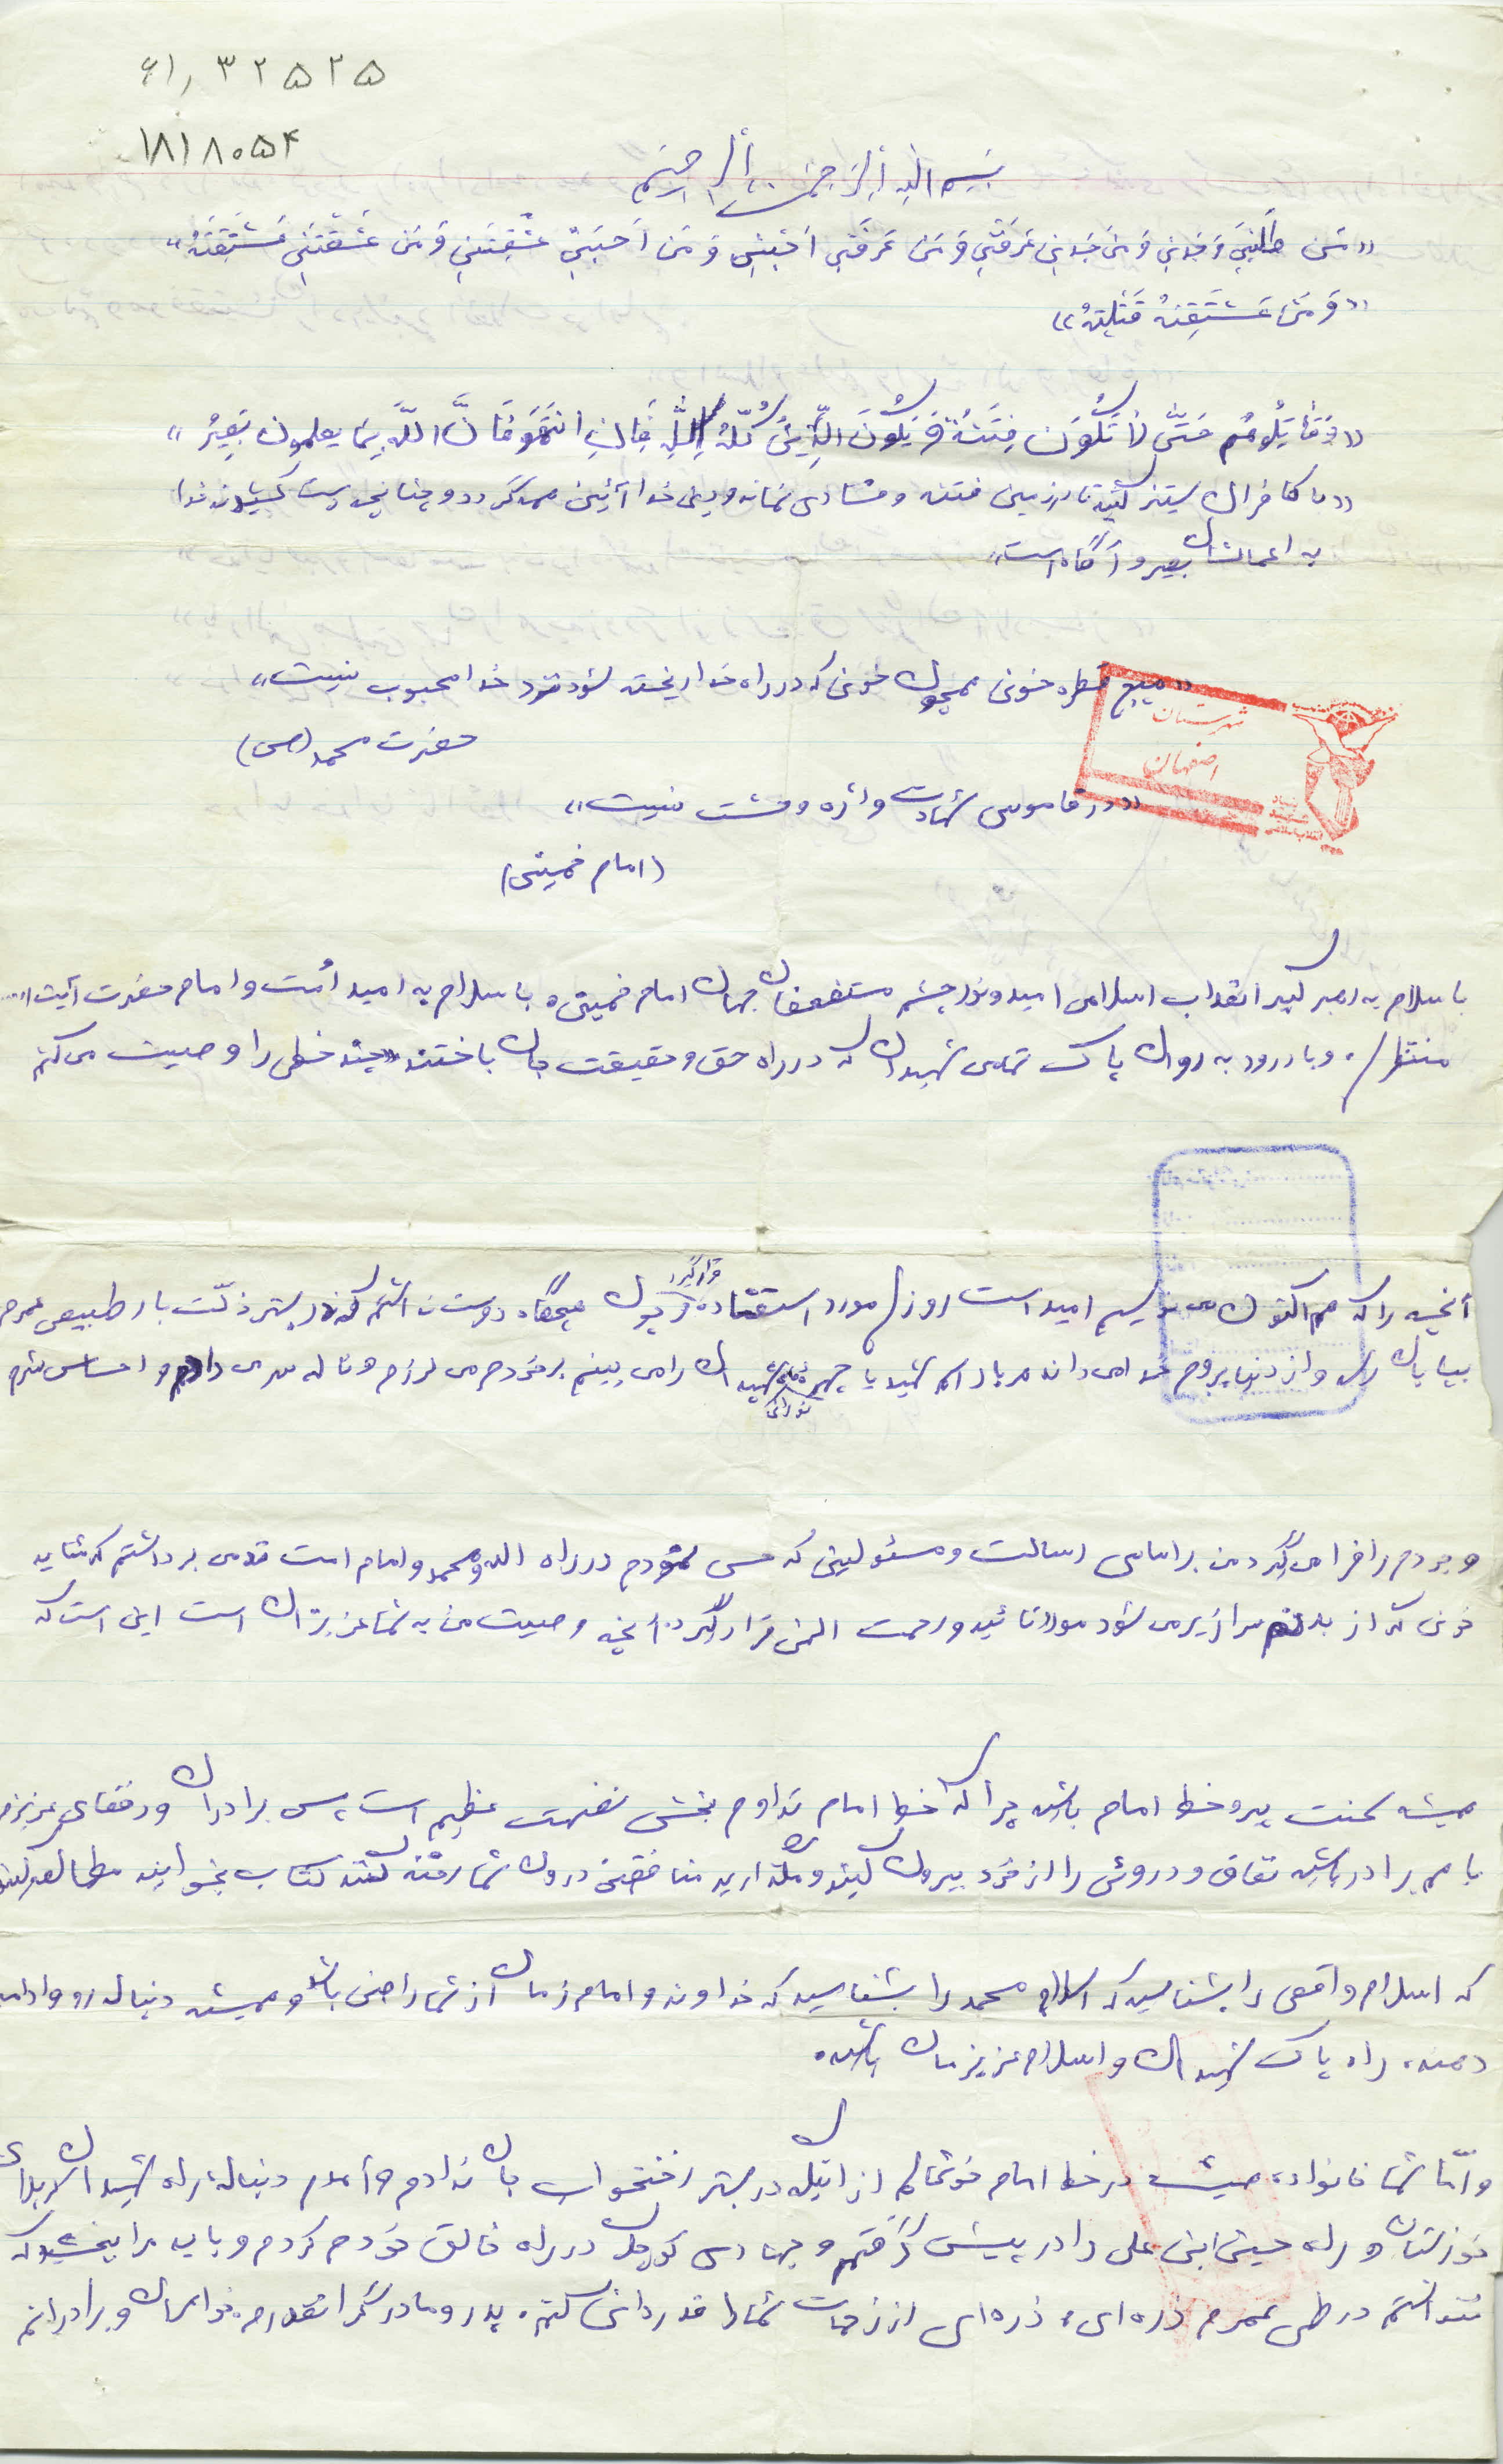 ۶۱٫۳۲۵۲۵
۱۸۱۸۰۵۴
بسم الله الرحمن الرحیم
«مَن طَلَبَنِی وَجَدَنی وَ مَن وَجَدَنی عَرَفَنی وَ مَن عَرَفَنی اَحَبَّنِی وَ مَن اَحَبَّنِی عَشَقَنِی وَ مَن عَشَقَنِی عَشَقتَهُ»
«وَ مَن عَشَقتَهُ قَتَلتَهُ»
«وَقَاتِلُوهُم حَتَّی لاَ تَکُونَ فِتنَةٌ وَ یَکُونَ الدِّینُ کُلّهُ لِلّهِ فَاِنِ انتَهَوا فَاِنَّ اللّهَ بِما یعلمون بَصِیرُ»
«با کافران ستیز کنید تا در زمین فتنه و فسادی نماند و دین خدا آئین همه گردد و چنانچه دست کشیدند خدا
به اعمالشان بصیر و آگاه است»
«هیچ قطره خونی همچون خونی که در راه خدا ریخته شود نزد خدا محبوب نیست»
حضرت محمد (ص)
شهرستان
اصفهان
«در قاموس شهادت واژه وحشت نیست»
(امام خمینی)
با سلام به رهبر کبیر انقلاب اسلامی امید و نور چشم مستضعفان جهان امام خمینی، با سلام به امید اُمت و امام حضرت آیت ا...
منتظری، و با درود به روان پاک تمامی شهیدان که در راه حق و حقیقت جان باختند چند خطی را وصیت می کنم
آنچه را که هم اکنون می نویسم امید است روزی مورد استفاده قرار گیرد چون هیچگاه دوست نداشتم که در بستر ذلّت بار طبیعی عمرم
بپایان رسد و از دنیا بروم خدا می داند هر بار اسم شهید یا چهره های نورانی شهیدان را می بینم بر خود می لرزم و ناله سر می دارم و احساس شرم
وجودم را فرا می گیرد من بر اساس رسالت و مسئولیتی که حس نمودم در راه الله و محمد و امام امت قدمی برداشتم که شاید
خونی که از بدنم سرازیر می شود مورد تائید و رحمت الهی قرار گیرد. آنچه وصیت من به شما عزیزان است این است که
همیشه سخت پیرو خط امام باشید چرا که خط امام تداوم بخش نهضت عظیم است، پس برادران و رفقای عزیزم
با هم برادر باشید نفاق و دروئی را از خود بیرون کنید و نگذارید منافقین درون شما رخنه کنند کتاب بخوانید مطالعه کنید
که اسلام واقعی را بشناسید که اسلام محمد را بشناسید که خداوند و امام زمان از شما راضی باشد و همیشه دنباله رو و ادامه
دهنده راه پاک شهیدان و اسلام عزیزمان باشید.
و امّا شما خانواده همیشه در خط امام خوشحالم از اینکه در بستر رختخواب جان ندادم و آمدم دنباله راه شهیدان کربلای
خوزستان و راه حسین ابن علی را در پیش گرفتم و جهادی کوچک در راه خالق خودم کردم و باید مرا ببخشید که
نتوانستم در طی عمرم ذره ای، ذره ای از زحمات شما را قدردانی کنم. پدر و مادر گرانقدرم، خواهران و برادرانم